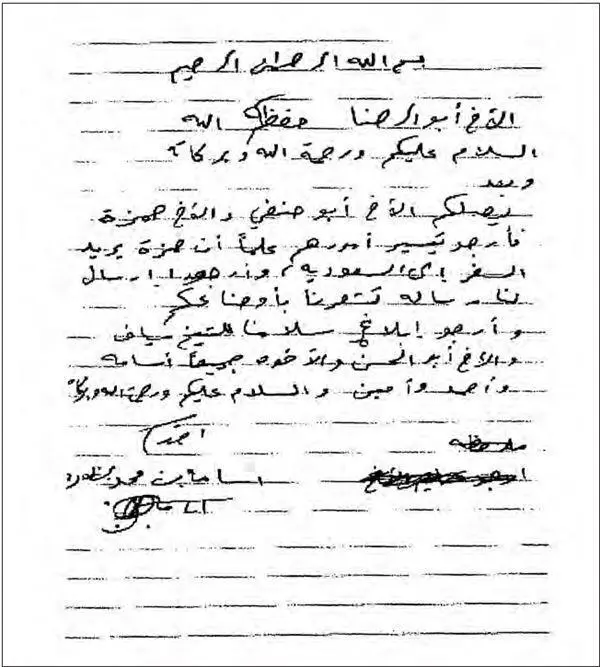 بسم الله الرحمن الرحيم
الأخ أبو الرضا حفظكم الله
السلام عليكم ورحمة الله وبركاته
وبعد
يصلكم الأخ أبو حنفي والأخ حمزة
فأرجو تيسير أمورهم علماً أن حمزة يريد
السفر إلى السعودية، وأرجو إرسال
لنا رساله تشعرنا بأوضاعكم
وأرجو إبلاغ سلامنا للشيخ سياف
والأخ أبو الحسن والأخوه جميعاً أسامه
وأحمد وأمين والسلام عليكم ورحمة الله وبركاته
أخوكم
ملاحظه
أسامة بن محمد بن